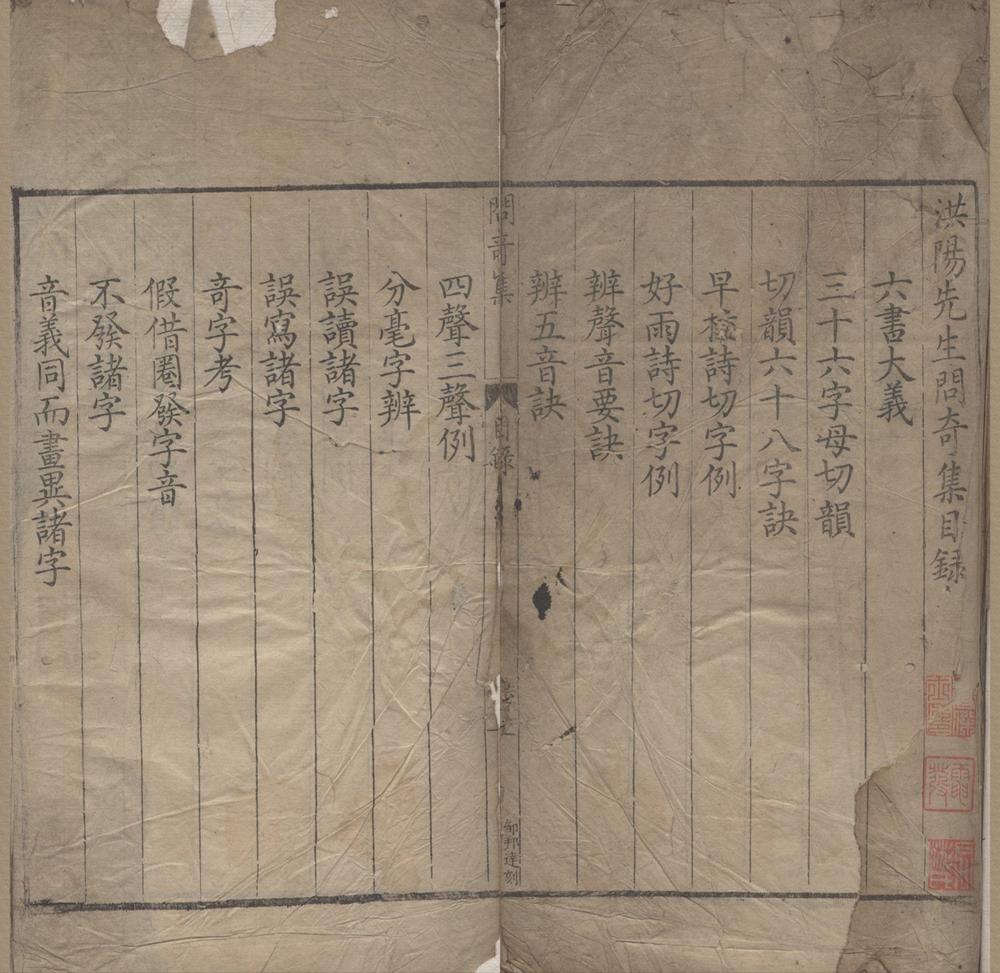 洪陽先生問奇集目録
六書大義
三十六字母切韻
切韻六十八字訣
早梅詩切字例
好雨詩切字例
辨聲音要訣
辨五音訣
問奇集
目録
邹邦達刻
四聲三聲例
分毫字辨
誤讀諸字
誤寫諸字
奇字考
假借圈發字音
不發諸字
音義同而畫異諸字